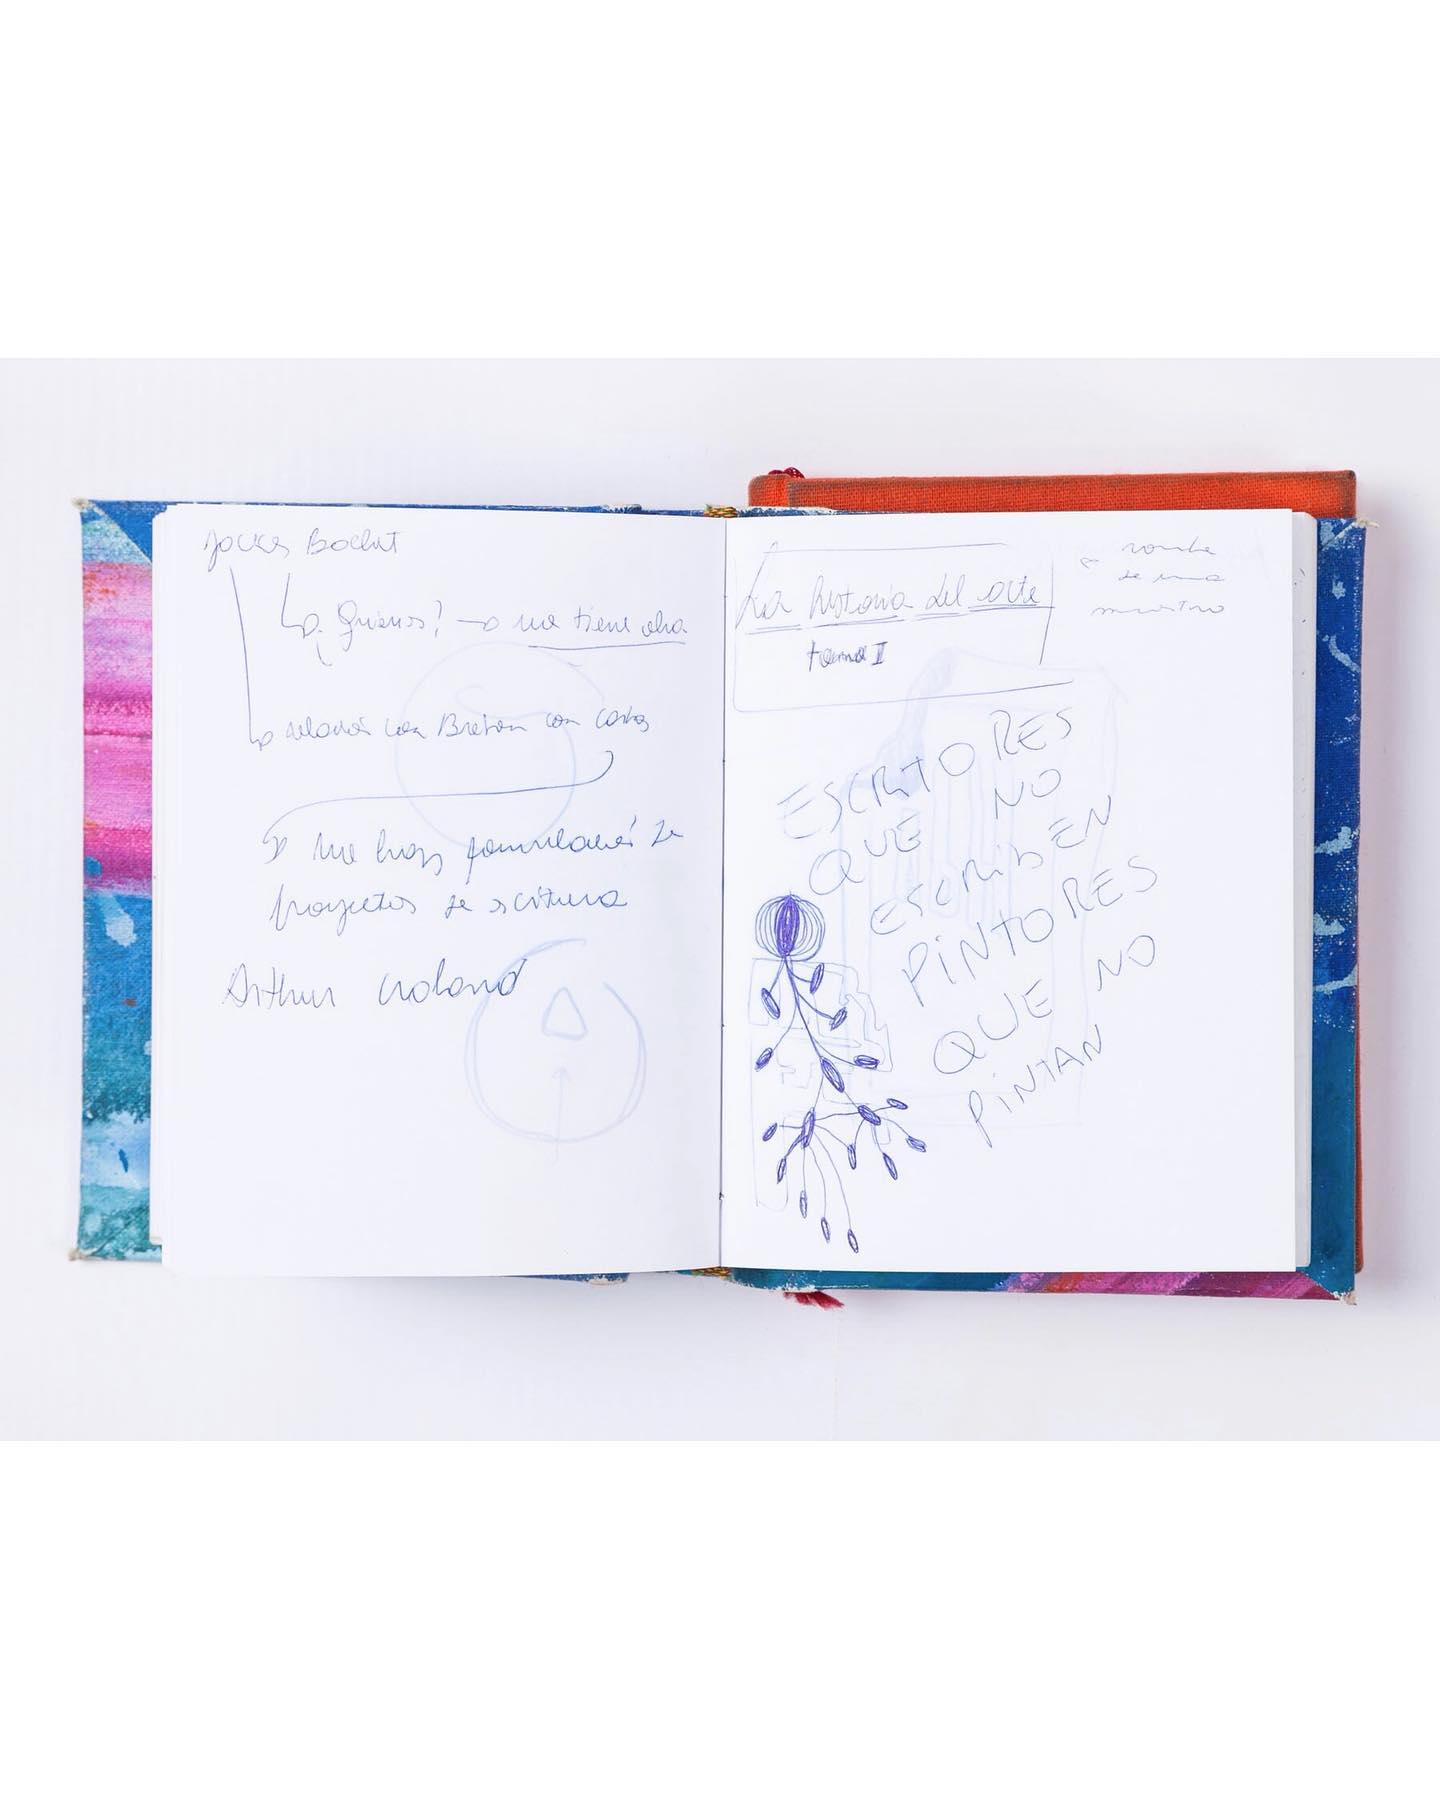 ¿Quiénes? → no tiene obra
relación con Breton con cartas
→ no hay formulación de
proyectos de escritura
Arthur
La historia del arte
tomo I
nombre
de una
muestra
ESCRITORES
QUE NO
ESCRIBEN
PINTORES
QUE NO
PINTAN